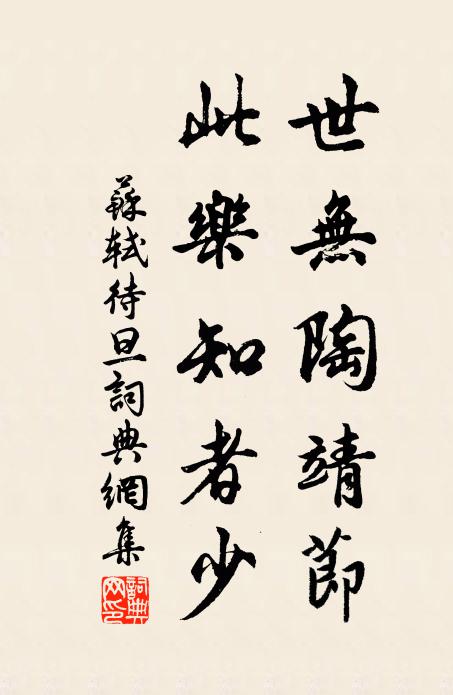 世無陶靖節
此樂知者少
蘇軾待旦詞典網集
詞典網印